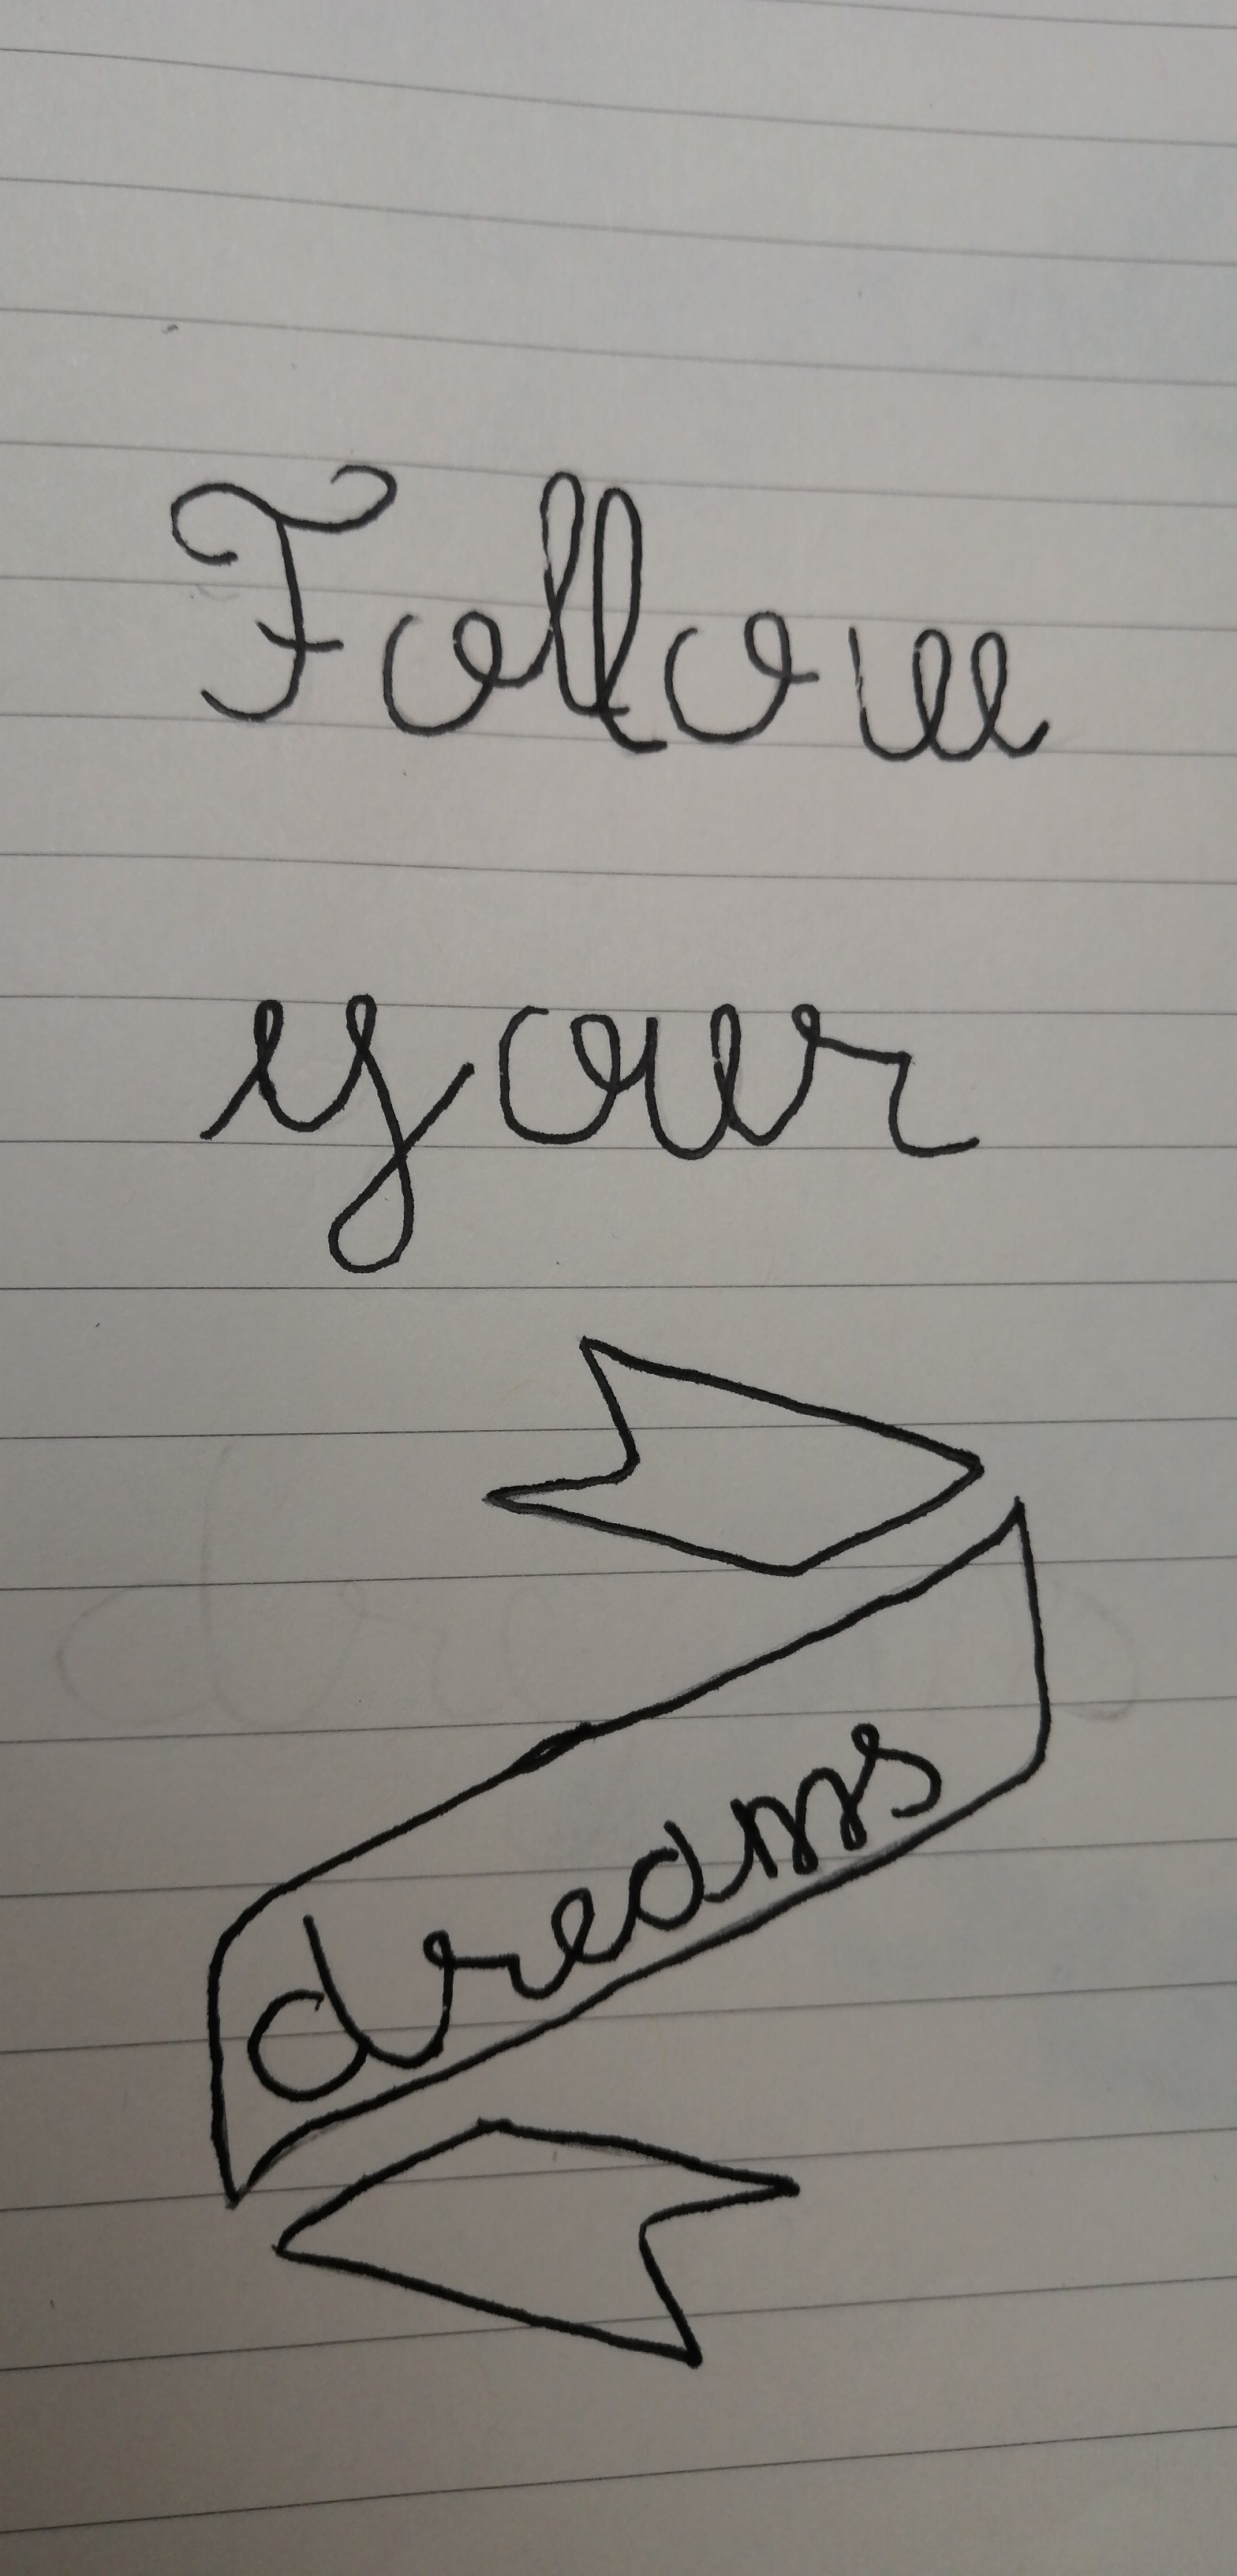 Follow
your
dreams